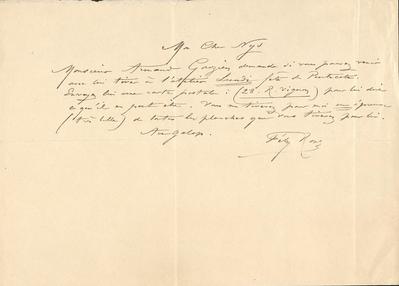 Mon Cher Nys
Monsieur Armand Gouzien demande si vous pouvez venir
avec lui tirer à l'atelier Lundi fête de Pentecôte.
Envoyez lui une carte postale : (28 R. Vignon) pour lui dire
ce qu'il en peut être. Vous en tirerez pour moi une épreuve
(très belle) de toutes les planches que vous tirerez pour lui.
Au Galop.
Fély Rops